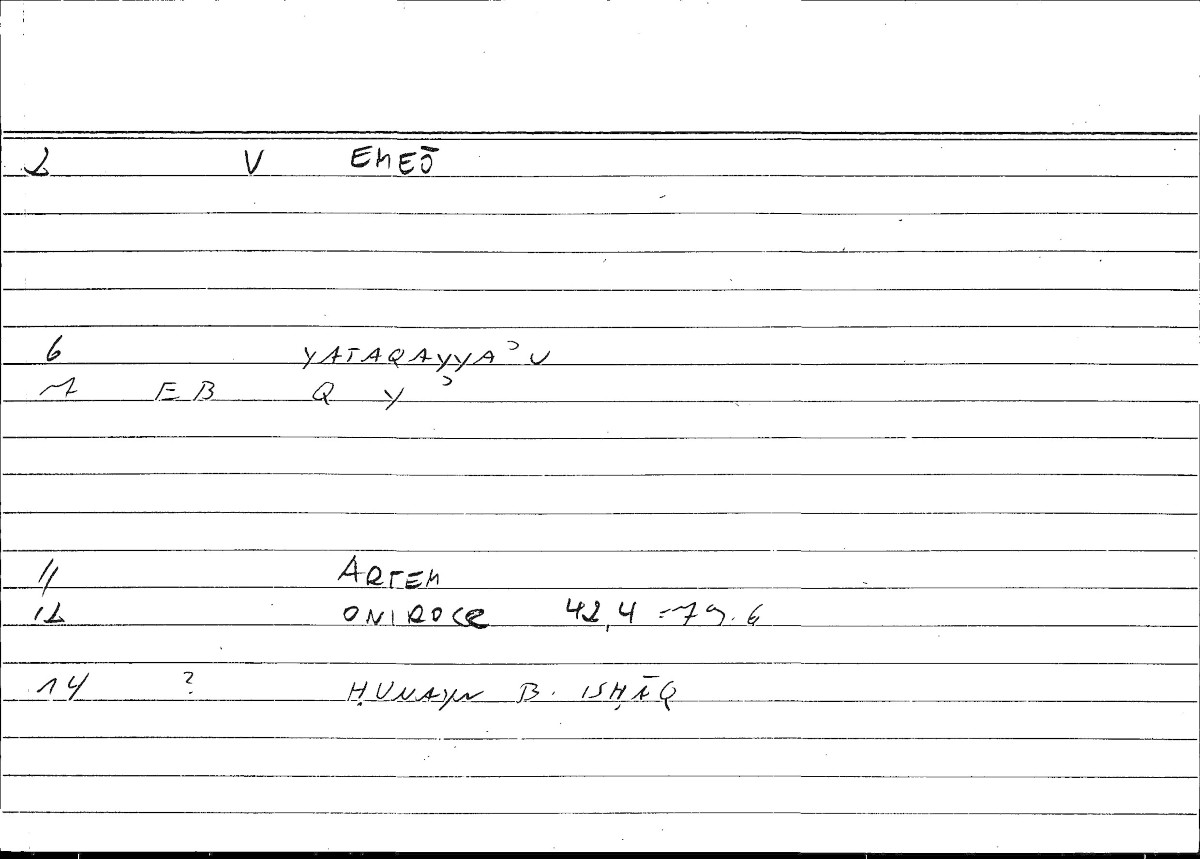 2 V EMEŌ
6 YATAQAYYAʾU
7 EB Q Yʾ
11 ARTEM
12 ONIROCR 42,4 = 79.6
14 ? ḤUNAYN B. ISḤĀQ